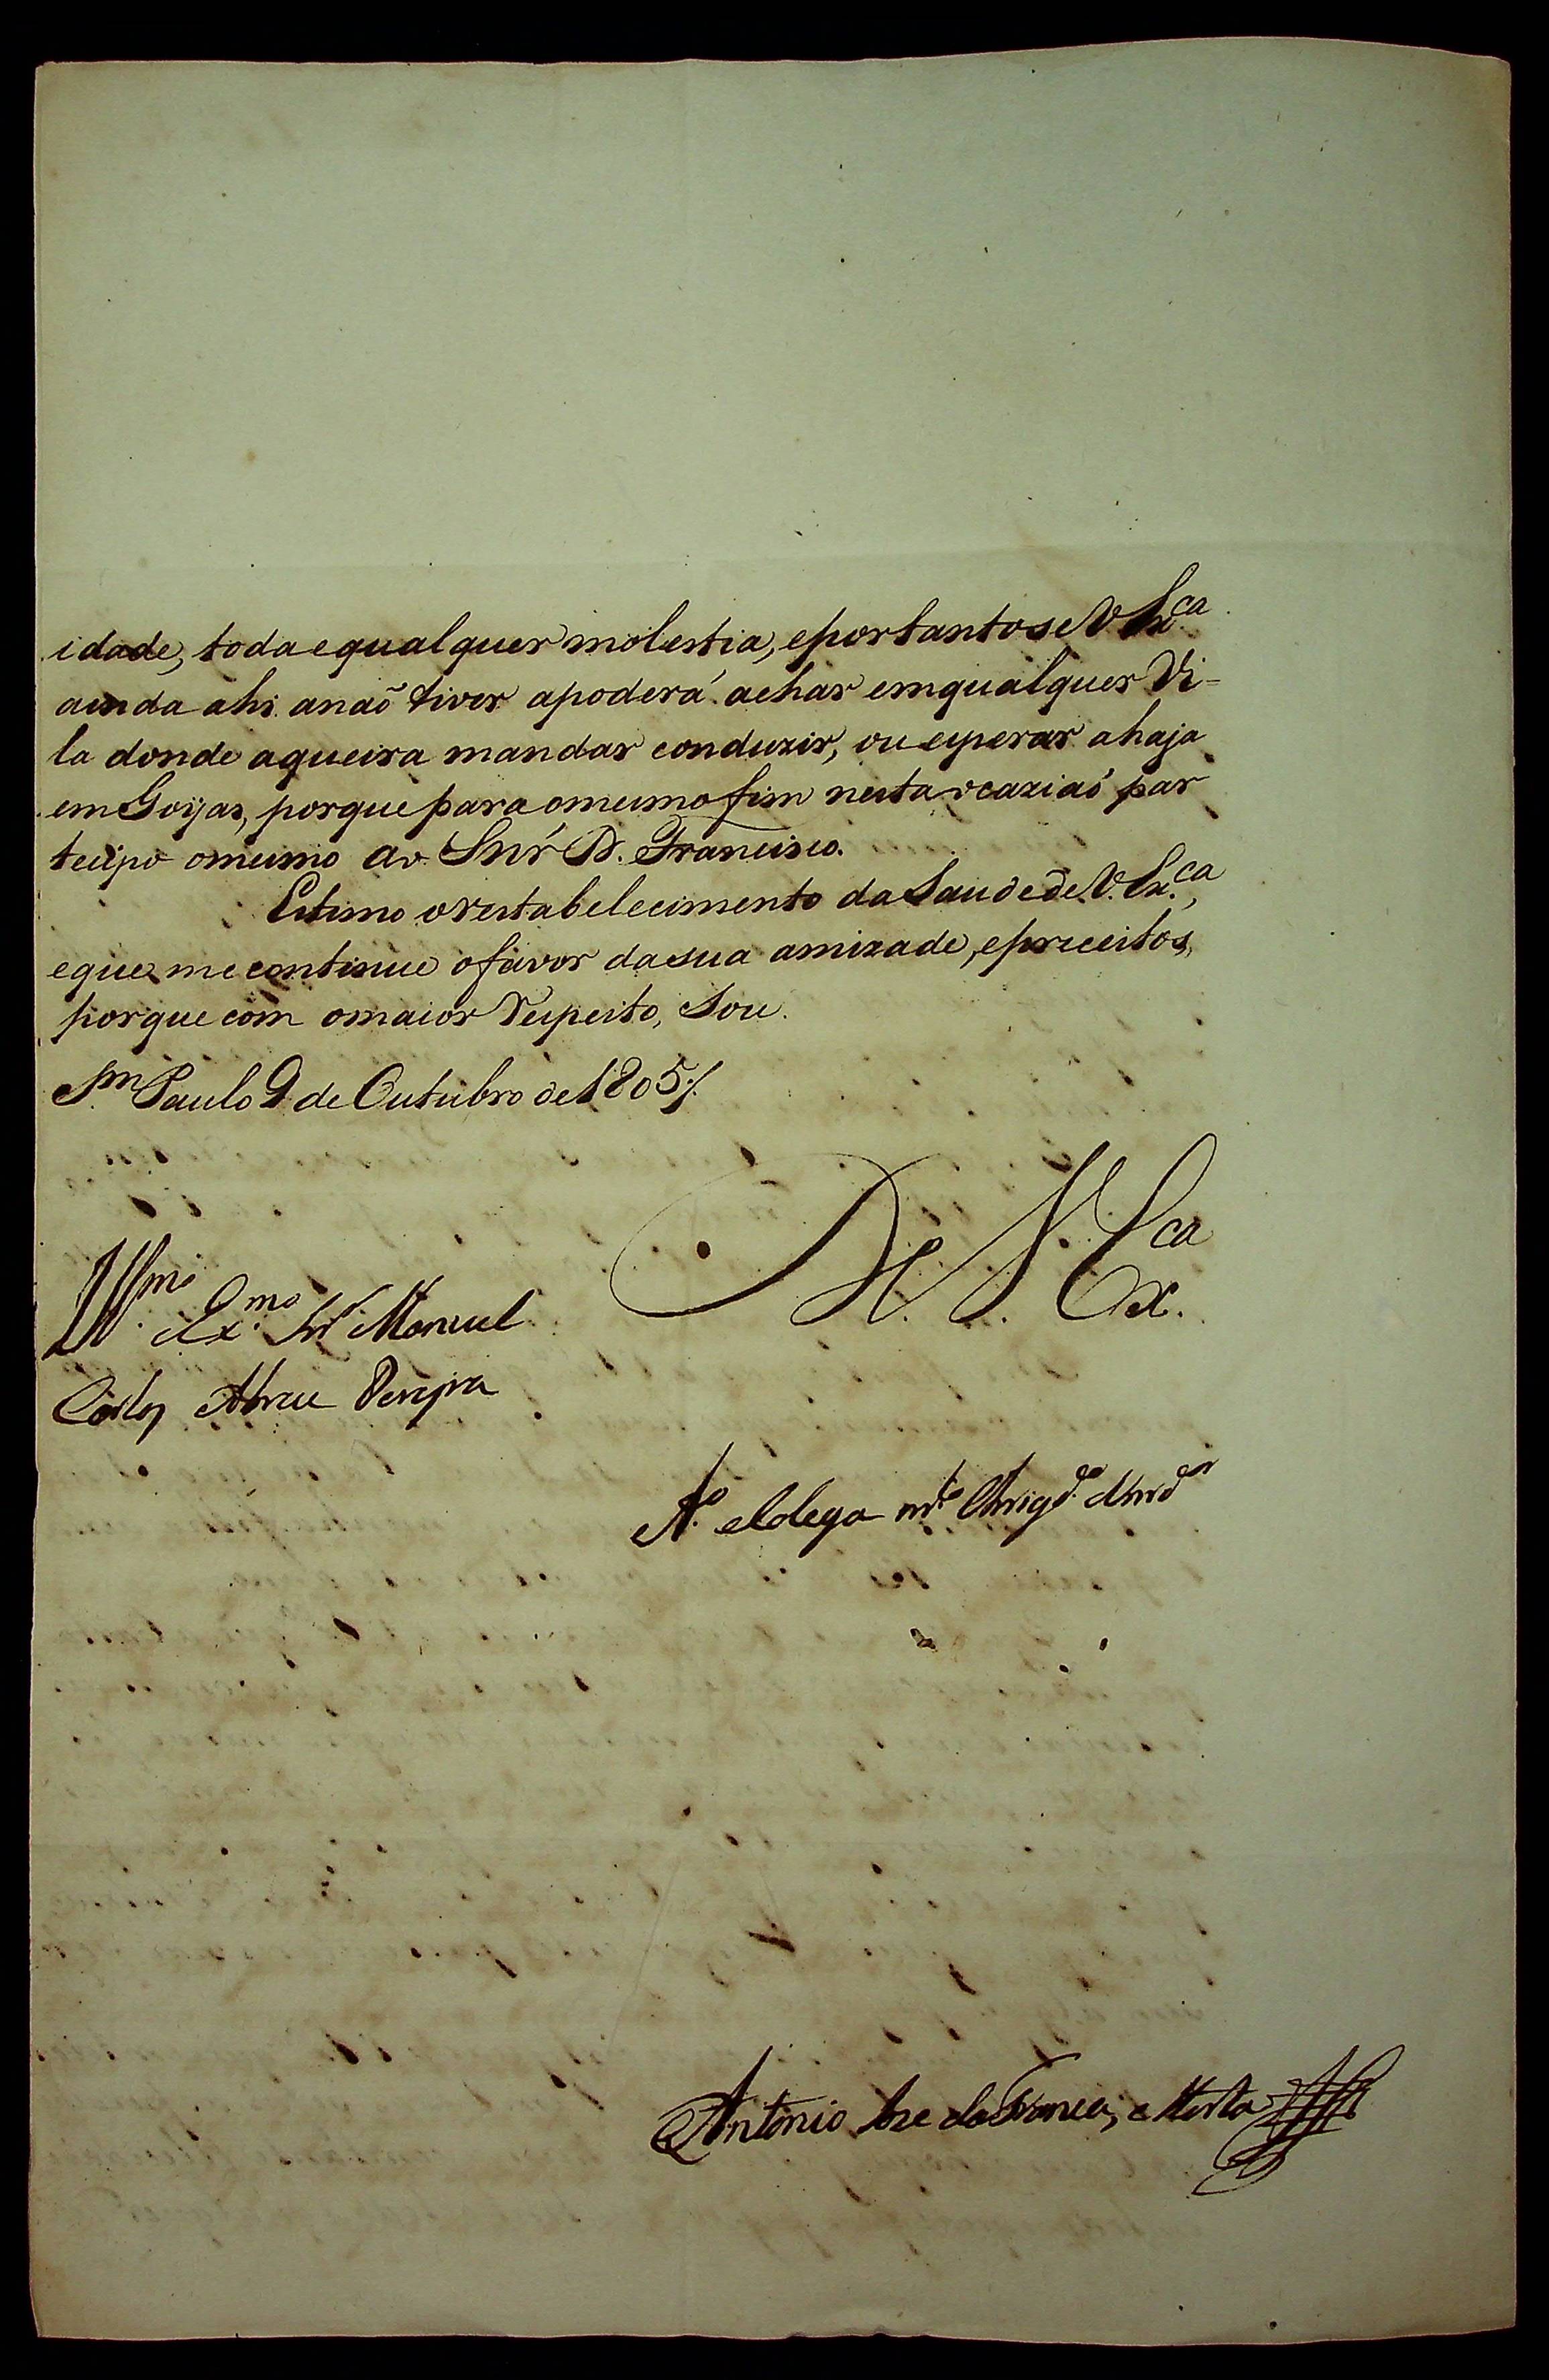 idade, toda equalquer molestia, eportanto se V. Ex.ca
ainda ahi anaõ tiver apoderá achar emqualquer Vi-
la donde aqueira mandar conduzir, ou esperar ahaja
em Goyas, porque para omesmo fim nesta ocaziaõ par
tecipo omesmo ao Snr' D. Francisco.
Estimo orestabelecimento da Saude de V. Ex.ca,
eque me continue ofavor dasua amizade, epreceitos,
porque com omaior respeito, Sou.
Sm Paulo 9 de Outubro de 1805/.
De V. Ex.ca
Illmo. Exmo. Snr Manuel
Carlos Abreu
Amo. eColega mto. Obrigdo.
Antonio Joze da Franca, e Horta